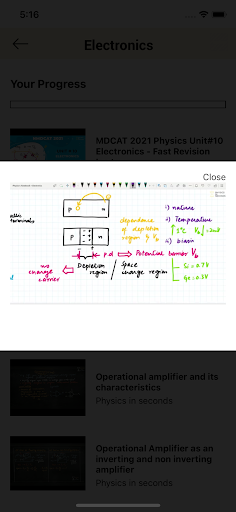 5:16
Electronics
Your Progress
MDCAT 2021 Physics Unit#10
Electronics - Fast Revision
Close
P n
terminals
dependence
of depletion
region & Vb
i) nature
ii) Temperature
↑ 1°C Vb
iii) biasin
P n
P.d ⇒ Potential barrier Vb
no
charge
carrier
Depletion
region /
Space
charge region
Si = 0.7V
Ge = 0.3V
Operational amplifier and its
characteristics
Physics in seconds
Operational Amplifier as an
inverting and non inverting
amplifier
Physics in seconds